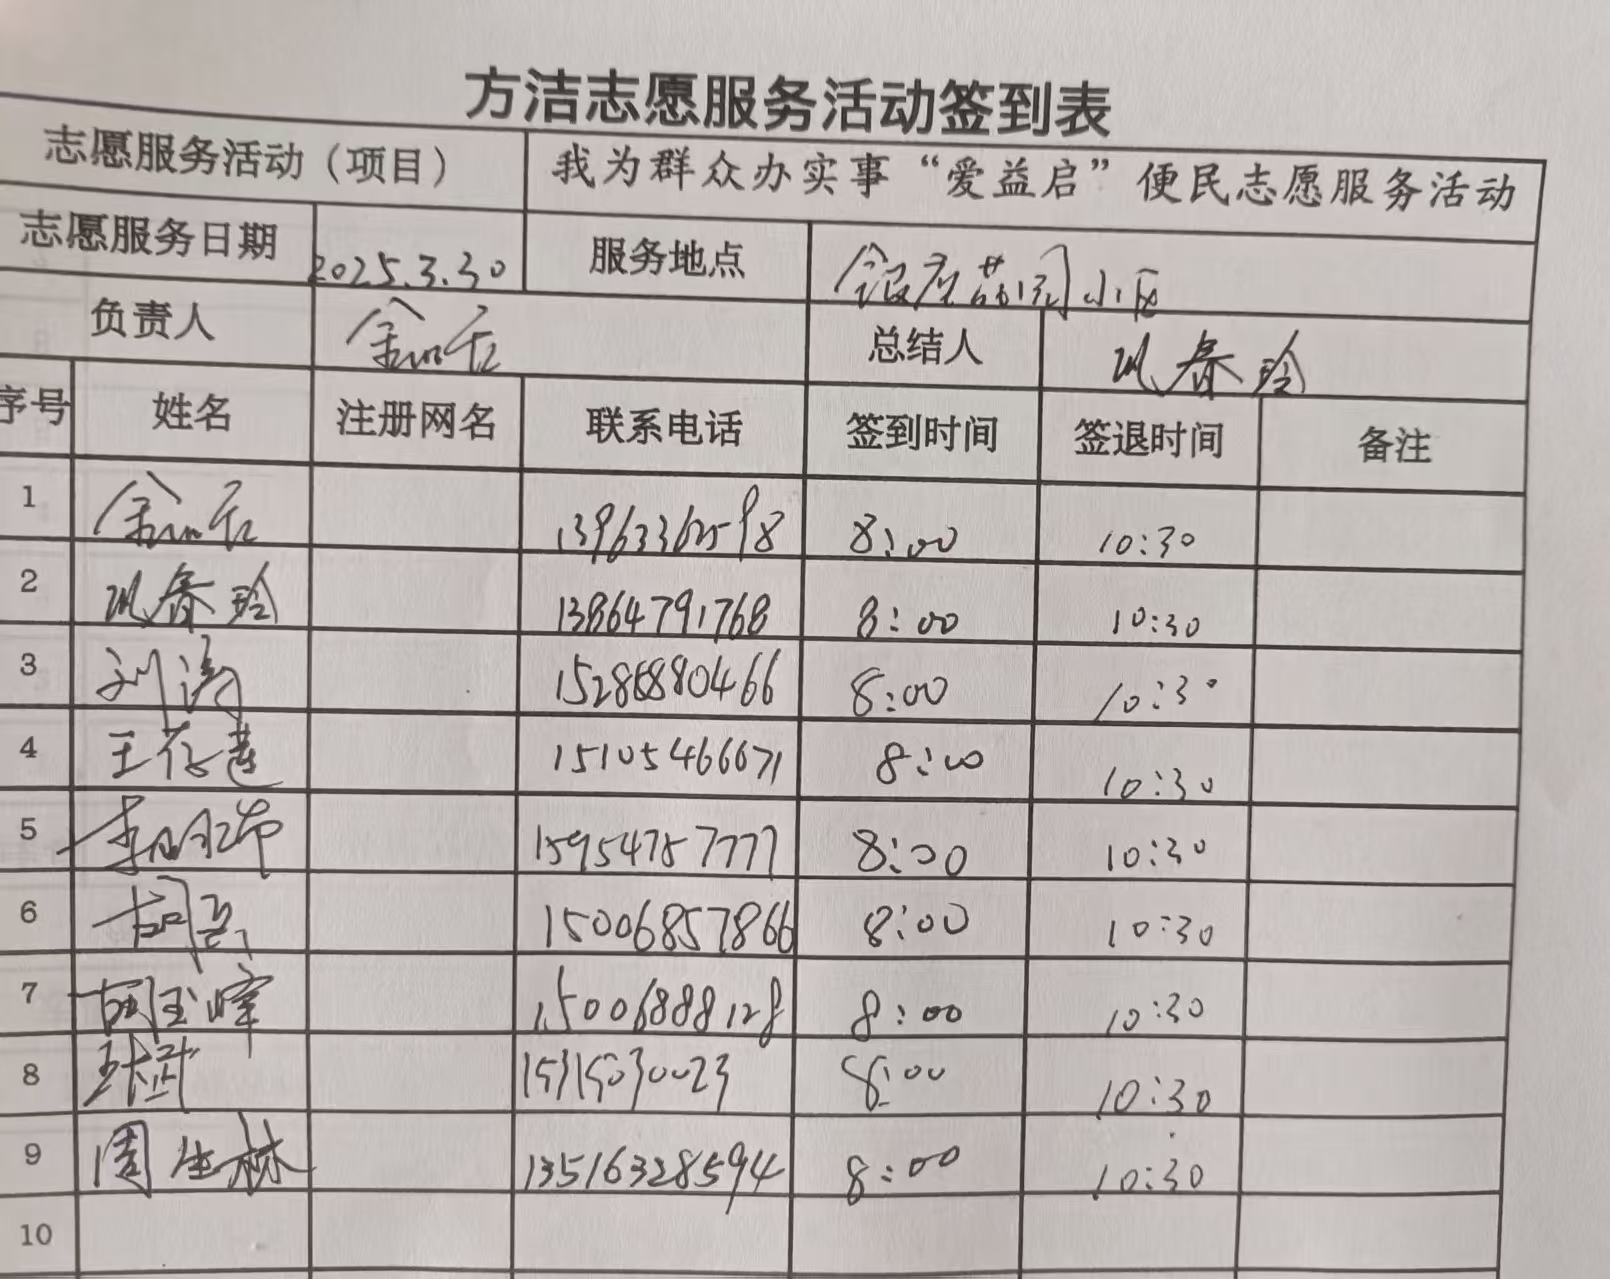 方洁志愿服务活动签到表
志愿服务活动（项目） 我为群众办实事“爱益启”便民志愿服务活动
志愿服务日期 2025.3.30 服务地点 小区
负责人 总结人 巩春玲
序号 姓名 注册网名 联系电话 签到时间 签退时间 备注
1 8:00 10:30
2 巩春玲 13864791768 8:00 10:30
3 刘涛 15286880466 8:00 10:30
4 王存莲 15105466671 8:00 10:30
5 15954757777 8:00 10:30
6 胡亮 15006857866 8:00 10:30
7 胡玉峰 15006888128 8:00 10:30
8 15315030023 8:00 10:30
9 周生林 13516328594 8:00 10:30
10